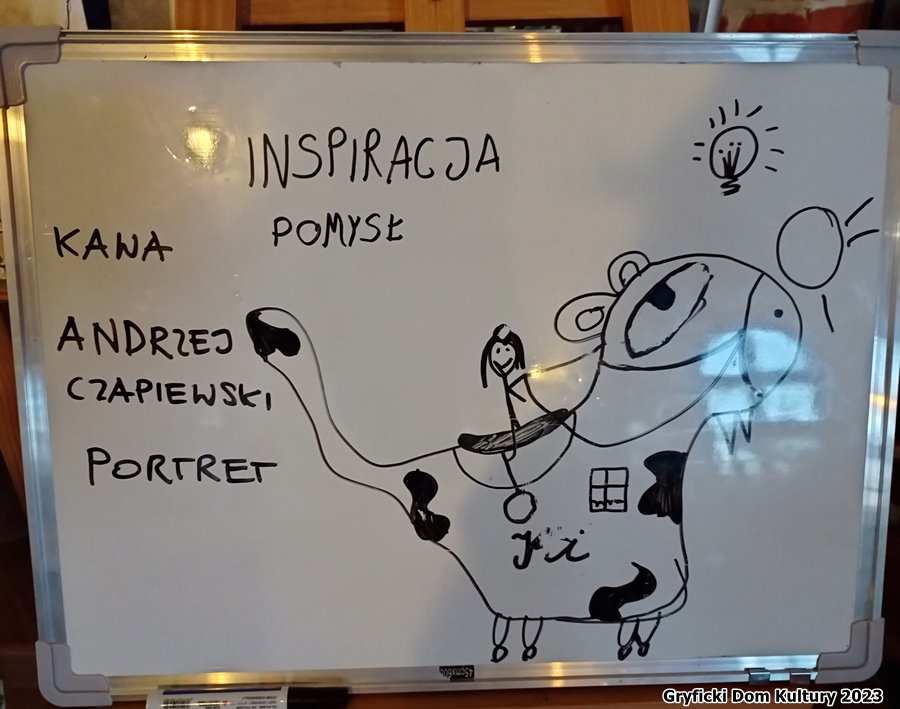 INSPIRACJA
POMYSŁ
KAWA
ANDRZEJ
CZAPIEWSKI
PORTRET
45cmx60c
Gryficki Dom Kultury 2023